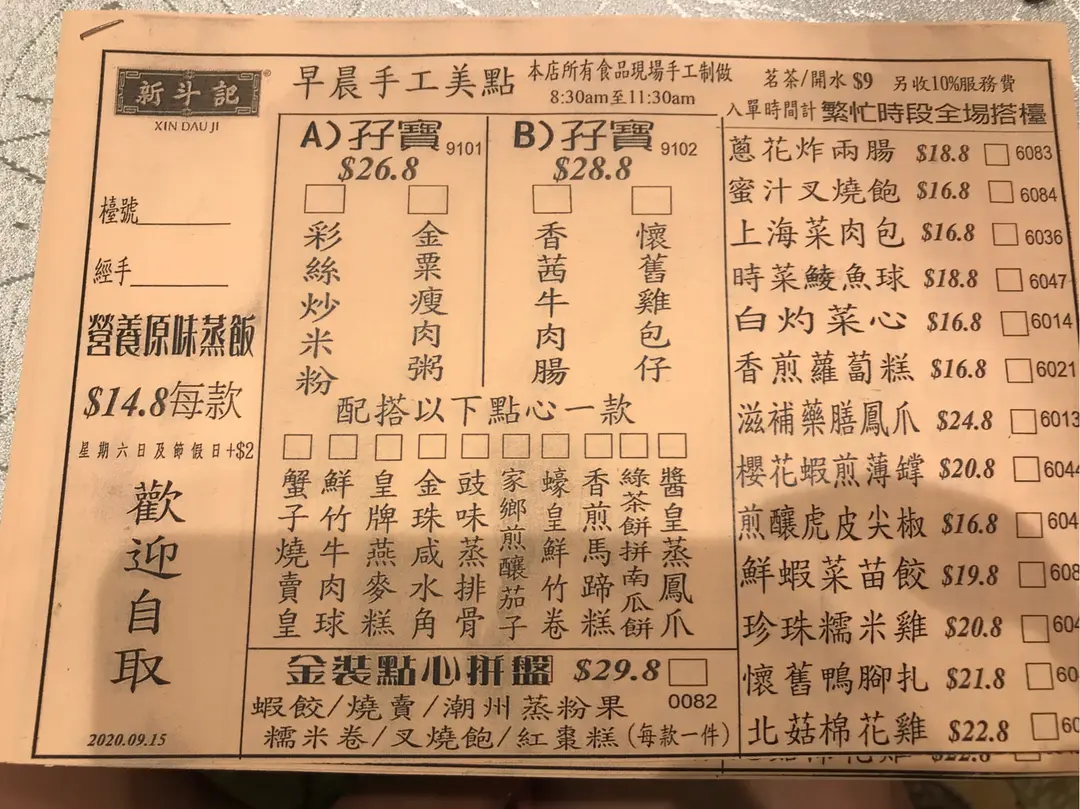 新斗記®
XIN DAU JI
早晨手工美點
本店所有食品現場手工制做
8:30am至11:30am
茗茶/開水 $9 另收10%服務費
入單時間計 繁忙時段全場搭檯
檯號
經手
營養原味蒸飯
$14.8每款
星期六日及節假日+$2
歡迎自取
2020.09.15
A)孖寶 9101
$26.8
彩絲炒米粉
金粟瘦肉粥
B)孖寶 9102
$28.8
香茜牛肉腸
懷舊雞包仔
配搭以下點心一款
蟹子燒賣皇
鮮竹牛肉球
皇牌燕麥糕
金珠咸水角
豉味蒸排骨
家鄉煎釀茄子
蠔皇鮮竹卷
香煎馬蹄糕
綠茶餅拼南瓜餅
醬皇蒸鳳爪
金裝點心拼盤 $29.8
0082
蝦餃/燒賣/潮州蒸粉果
糯米卷/叉燒飽/紅棗糕(每款一件)
蔥花炸兩腸 $18.8 6083
蜜汁叉燒飽 $16.8 6084
上海菜肉包 $16.8 6036
時菜鯪魚球 $18.8 6047
白灼菜心 $16.8 6014
香煎蘿蔔糕 $16.8 6021
滋補藥膳鳳爪 $24.8 6013
櫻花蝦煎薄罉 $20.8 6044
煎釀虎皮尖椒 $16.8 604
鮮蝦菜苗餃 $19.8 608
珍珠糯米雞 $20.8 604
懷舊鴨腳扎 $21.8 60
北菇棉花雞 $22.8 60